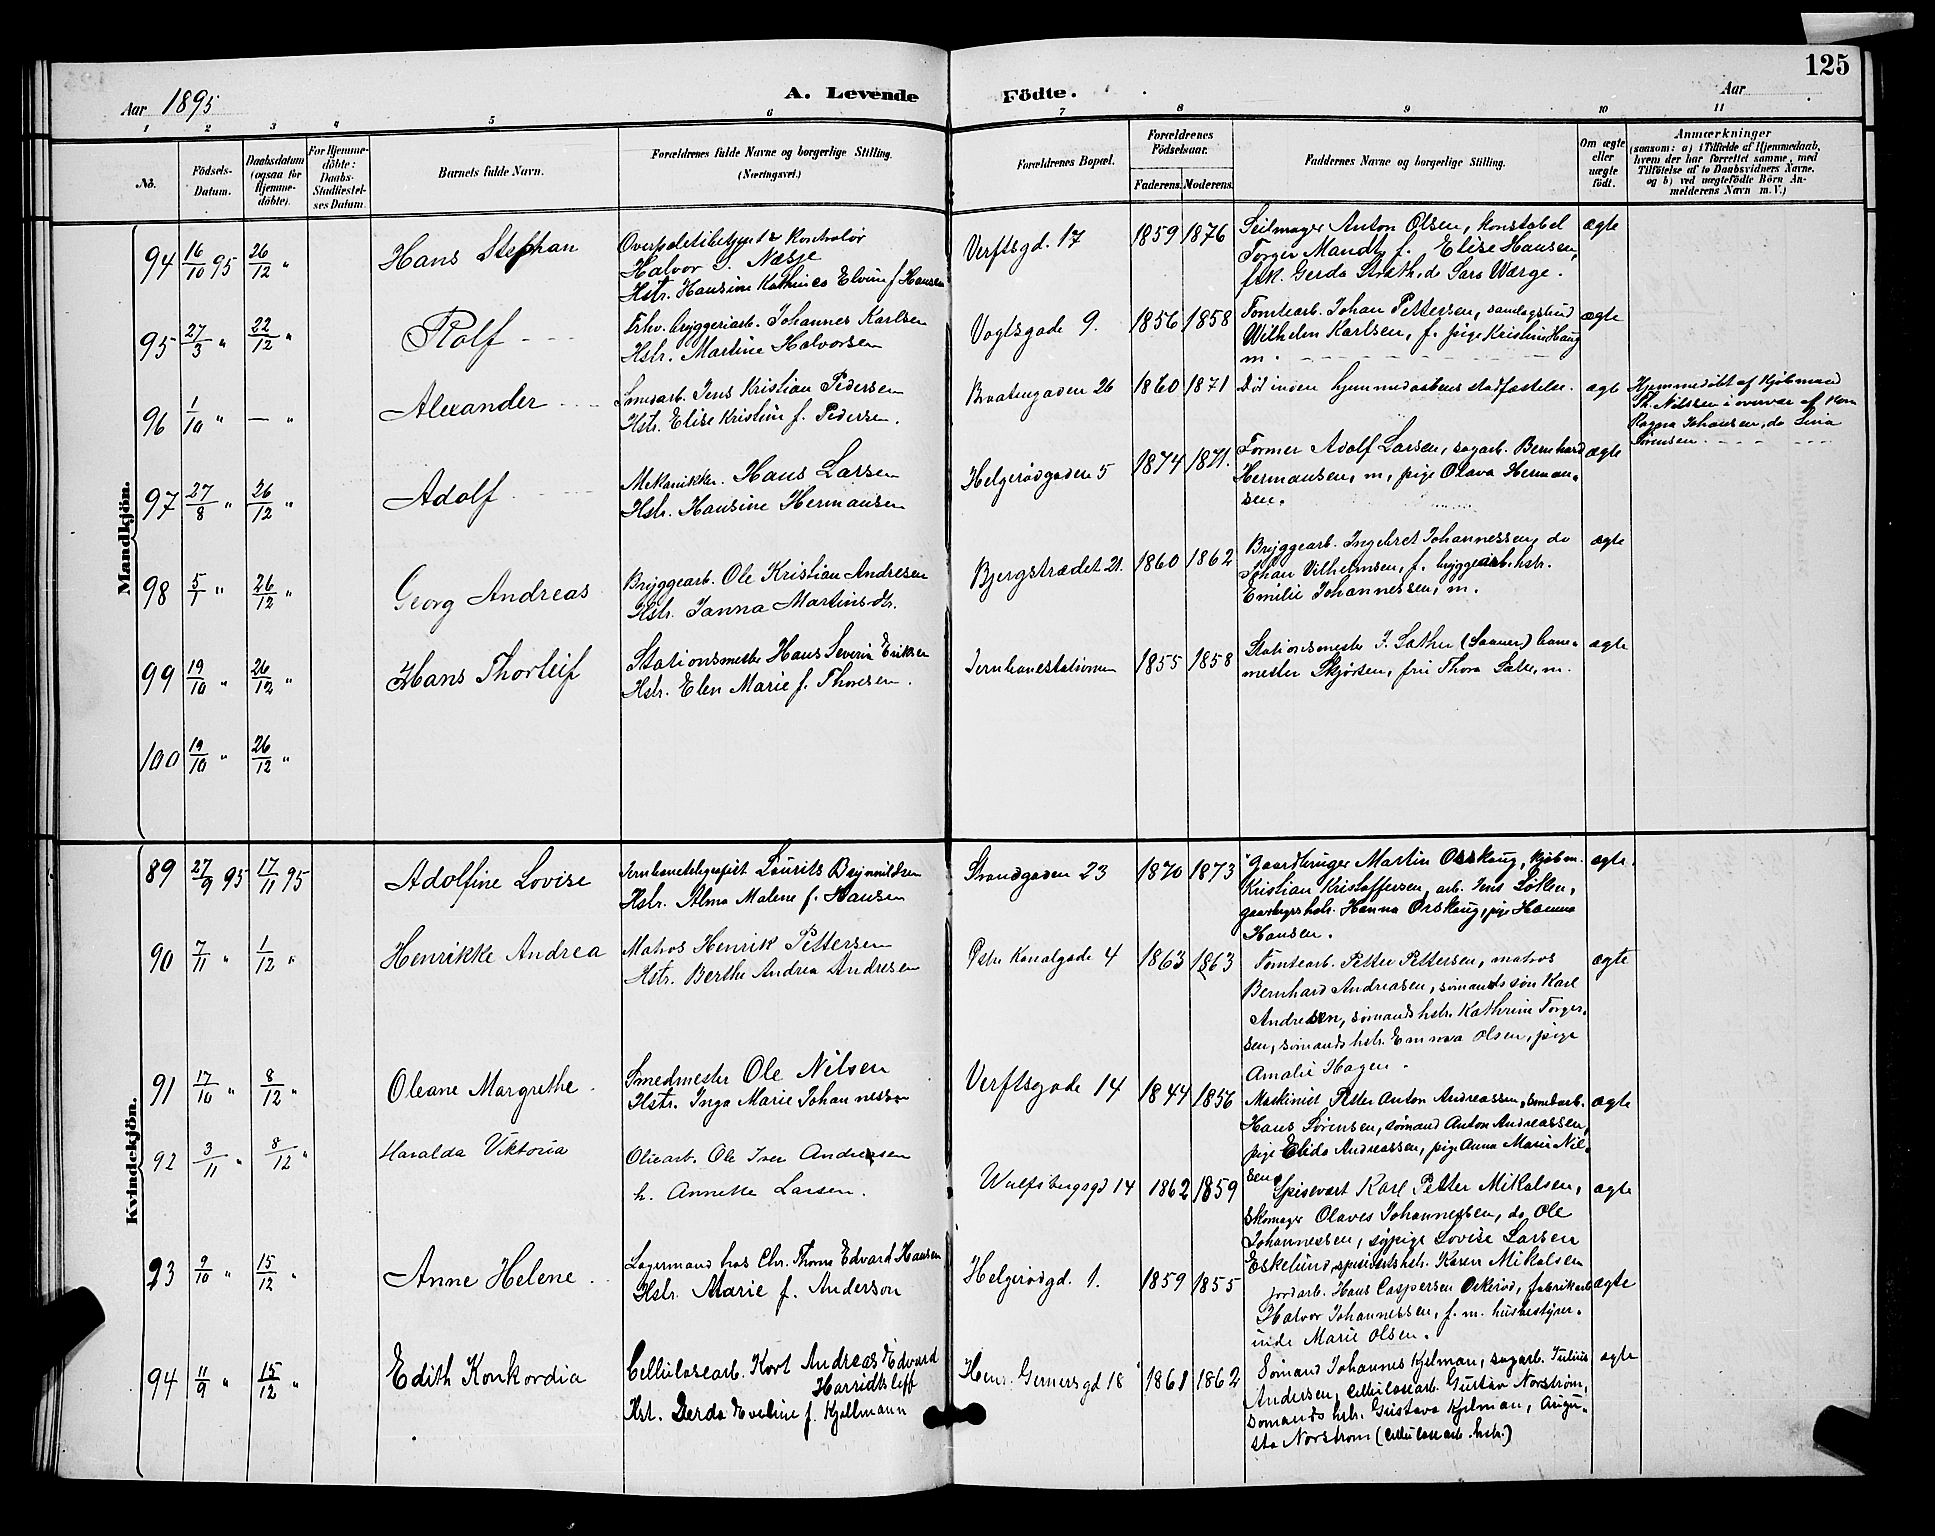 125
Aar 1895
A. Levende Födte.
Aar
1 2 3 4 5 6 7 8 9 10 11
No.
Födsels-Datum.
Daabsdatum (ogsaa for Hjemme-döbte).
For Hjemme-döbte: Daabs-Stadfæstel-ses Datum.
Barnets fulde Navn.
Forældrenes fulde Navne og borgerlige Stilling.
(Næringsvei.)
Forældrenes Bopæl.
Forældrenes Födselsaar.
Faderens. Moderens.
Faddernes Navne og borgerlige Stilling.
Om ægte eller uægte født.
Anmærkninger
(saasom: a) i Tilfælde af Hjemmedaab,
hvem der har forrettet samme, med
Tilföielse af to Daabsvidners Navne,
og b) ved uægtefödte Börn An-
melderens Navn m. V.)
Mandkjön.
94 16/10 95 26/12 "
Hans Stephan
Kontrolör
Halvor S. Næsje
Hstr. Hansine Elvine f Hansen
Verftsgd. 17
1859 1876
Seilmager Anton Olsen, konstabel
Torger Mandt, f. Elise Hansen,
frk. Gerda Strøth, do Sara Wærge.
ægte
95 27/3 " 22/12 "
Rolf
Frhv. bryggeriarb. Johannes Karlsen
Hstr. Martine Halvorsen
Vogtsgade 9.
1856 1858
Tomtearb. Johan Pettersen, samlagsbud
Wilhelm Karlsen, f. pige Kristine Haug
m.
ægte
96 1/10 " — "
Alexander
Jens Kristian Pedersen
Hstr. Elise Kristine f. Pedersen.
Braatengaden 26
1860 1871
Död inden hjemmedaabens stadfæstelse.
ægte
Hjemmedöbt af Kjöbmand
Th. Nilssen i overvær af Kone
Ragna Johansen, do Lina
Sörensen
97 27/8 " 26/12 "
Adolf
Mekanikker. Hans Larsen
Hstr. Hansine Hermansen
Helgerödgaden 5
1874 1871.
Former Adolf Larsen, sagarb. Bernhard
Hermansen, m, pige Olava Herman-
sen.
ægte
98 5/1 " 26/12 "
Georg Andreas
Bryggearb. Ole Kristian Andresen
Hstr. Janna Martinsdtr.
Bjergstrædet 21.
1860 1862
Bryggearb. Ingebret Johannessen, do
Johan Vilhelmsen, f. bryggearb. hstr.
Emilie Johannessen, m.
ægte
99 19/10 " 26/12 "
Hans Thorleif
Stationsmester Hans Severin Eriksen
Hstr. Elen Marie f. Thoresen.
Jernbanestationen
1855 1858
Stationsmester J. Sather (Saaner) bane-
mester Skjörsen, fru Thora Sater, m.
ægte
100 19/10 " 26/12 "
Kvindekjön.
89 27/9 95 17/11 95
Adolfine Lovise
Jernbanetelegrafist Laurits Brynildsen
Hstr. Alma Malene f. Hansen
Strandgaden 23
1870 1873
Gaardbruger Martin Orskaug, kjöbm.
Kristian Kristoffersen, arb. Jens Löken,
gaardbrgs hstr. Hanna Orskaug, pige Hanna
Hansen.
ægte.
90 7/11 " 1/12 "
Henrikke Andrea
Matros Henrik Pettersen
Hstr. Berthe Andrea Andresen
Östre Kanalgade 4
1863 1863
Tomtearb. Petter Pettersen, matros
Bernhard Andreasen, sömands sön Karl
Andresen, sömands hstr. Kathrine Torger-
sen, sömands hstr. Emma Olsen, pige
Amalie Hagen.
ægte
91 17/10 " 8/12 "
Oleane Margrethe.
Smedmester Ole Nilsen
Hstr. Inga Marie Johannessen
Verftsgade 14
1844 1856
Maskinist Peter Anton Andreassen, smedarb.
Hans Sörensen, sömand Anton Andreassen,
pige Elida Andreassen, pige Anna Marie Nil-
sen.
ægte
92 3/11 " 8/12 "
Haralda Viktoria
Oliearb. Ole Iver Andresen
h. Annette Larsen.
Wulfsbergsgd 14
1862 1859
Spisevært Karl Petter Mikalsen,
Skomager Olaves Johannesen, do Ole
Johannessen, sypige Lovise Larsen
Eskelund, spiseverts hstr. Karen Mikalsen
ægte
93 9/10 " 15/12 "
Anne Helene.
Lagermand hos Chr. Thorne Edvard Hansen
Hstr. Marie f. Anderson
Helgerödgd. 1.
1859 1855
Jordarb. Hans Caspersen Oskeröd, fabrikarb.
Halvor Johannessen, f. m. husbestyrer-
inde Marie Olsen.
ægte
94 11/9 " 15/12 "
Edith Konkordia
Cellulosearb. Kort Andreas Edvard
Harridtsleff
Hst. Derda Eveline f. Kjellmann
Henr. Gerners gd 18
1861 1862
Sömand Johannes Kjelman, sagarb. Julius
Andersen, Cellulosearb. Gustav Norström,
Sömands hstr. Gustava Kjelman, Augu-
sta Norström (Cellulose arb. hstr.)
ægte